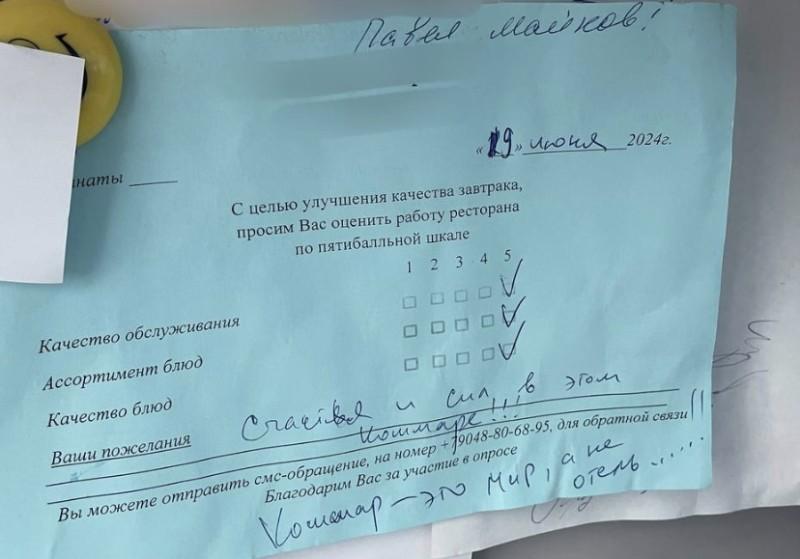 Павел Майков!
«19» июня 2024г.
наты
С целью улучшения качества завтрака,
просим Вас оценить работу ресторана
по пятибалльной шкале
1 2 3 4 5
Качество обслуживания
Ассортимент блюд
Качество блюд
Ваши пожелания Счастья и сил в этом
кошмаре!!!
Вы можете отправить смс-обращение, на номер +79048-80-68-95, для обратной связи
Благодарим Вас за участие в опросе
Кошмар – это мир, а не
отель.....